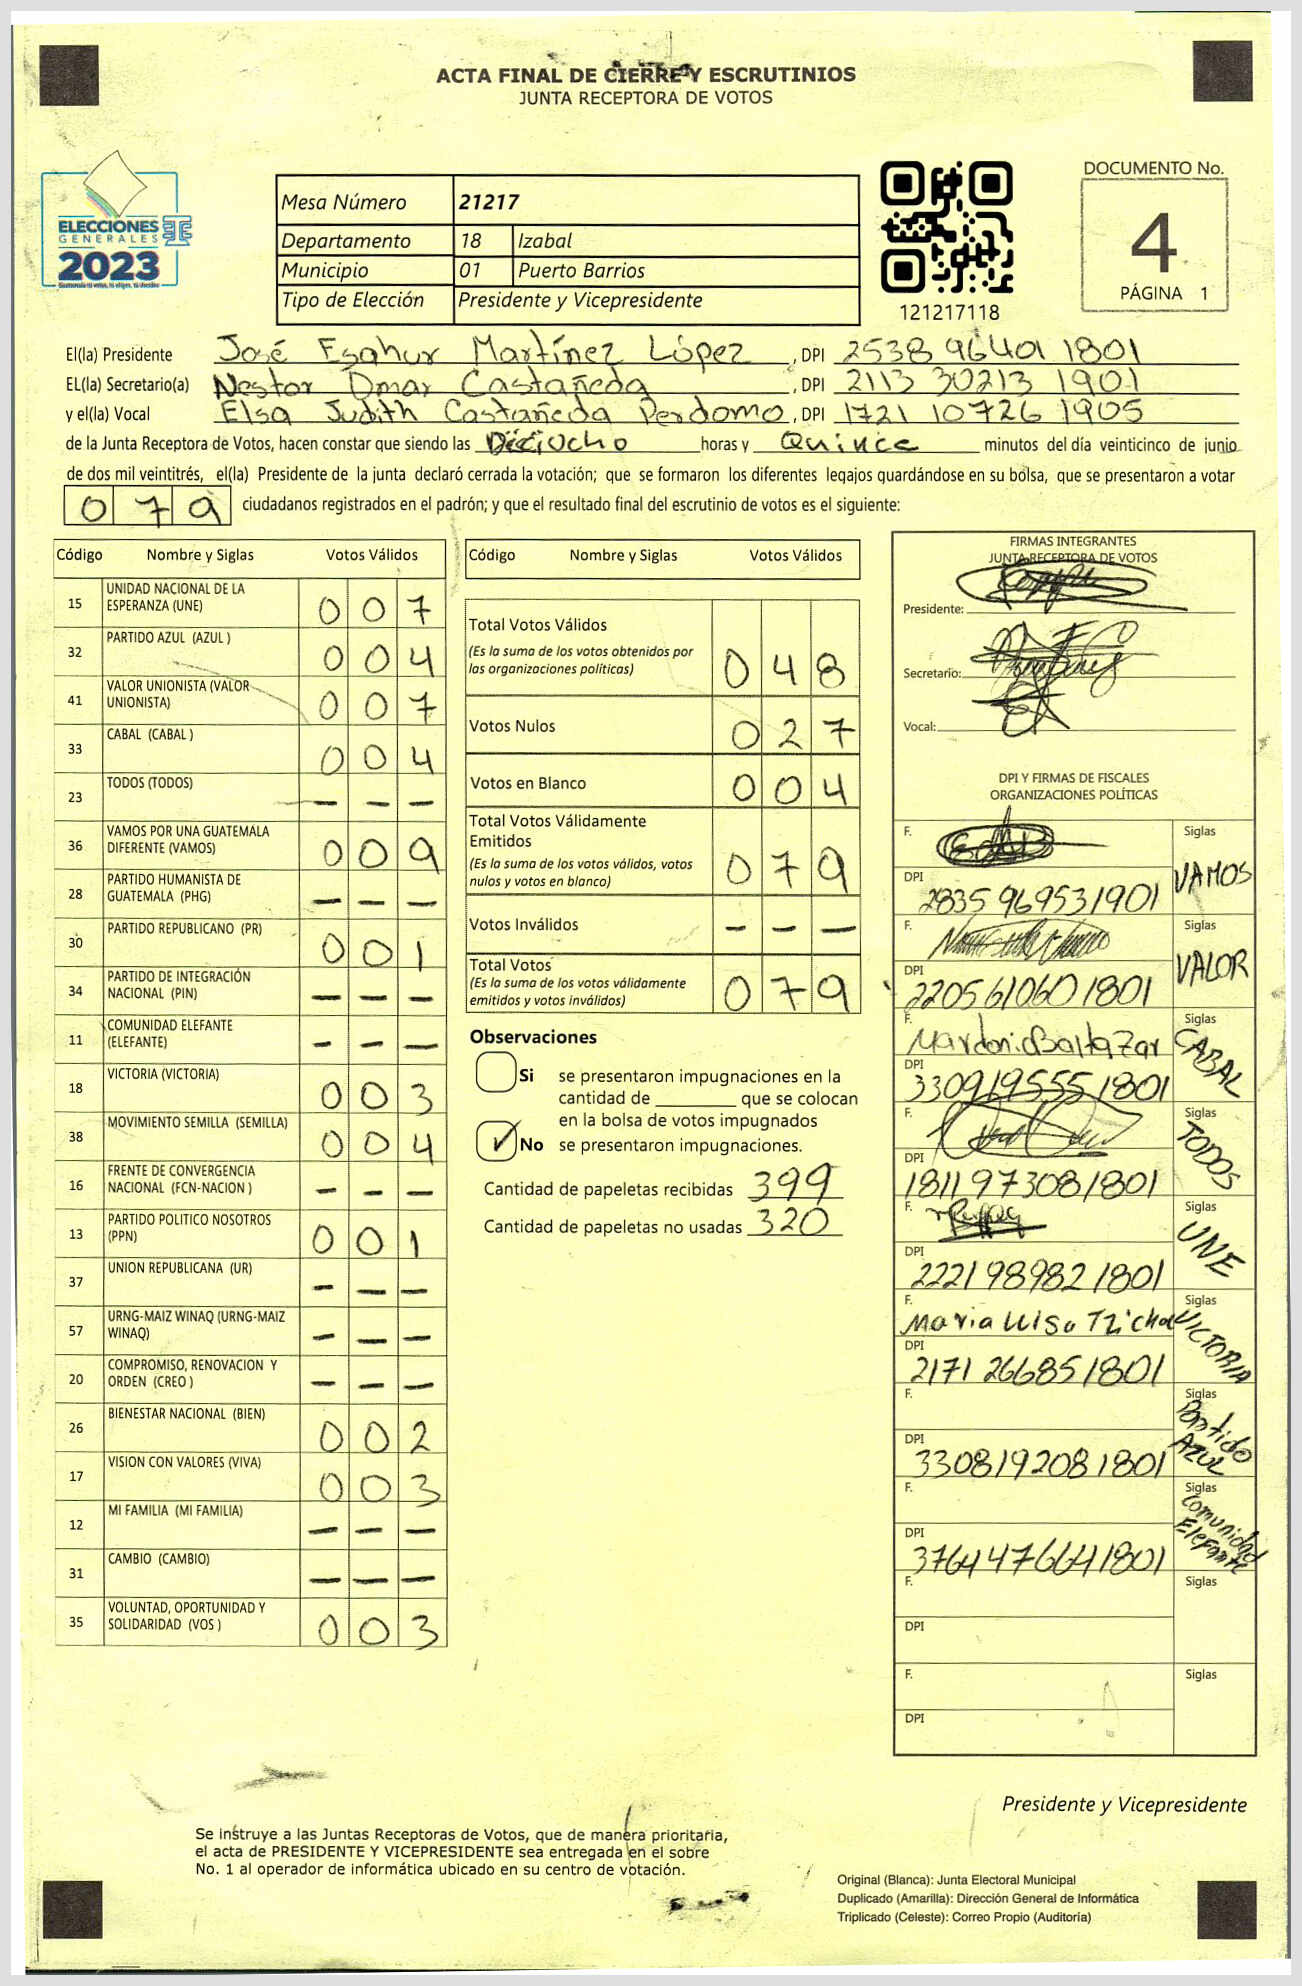 ACTA FINAL DE CIERRE Y ESCRUTINIOS
JUNTA RECEPTORA DE VOTOS
ELECCIONES
GENERALES
2023
Guatemala tú votas, tú eliges, tú decides
Mesa Número 21217
Departamento 18 Izabal
Municipio 01 Puerto Barrios
Tipo de Elección Presidente y Vicepresidente
121217118
DOCUMENTO No.
4
PÁGINA 1
El(la) Presidente José Esahur Martínez López, DPI 2538 96401 1801
EL(la) Secretario(a) Nestor Omar Castañeda, DPI 2113 30213 1901
y el(la) Vocal Elsa Judith Castañeda Perdomo, DPI 1721 10726 1905
de la Junta Receptora de Votos, hacen constar que siendo las Dieciocho horas y Quince minutos del día veinticinco de junio
de dos mil veintitrés, el(la) Presidente de la junta declaró cerrada la votación; que se formaron los diferentes legajos guardándose en su bolsa, que se presentaron a votar
079 ciudadanos registrados en el padrón; y que el resultado final del escrutinio de votos es el siguiente:
Código Nombre y Siglas Votos Válidos
15 UNIDAD NACIONAL DE LA ESPERANZA (UNE) 007
32 PARTIDO AZUL (AZUL ) 004
41 VALOR UNIONISTA (VALOR UNIONISTA) 007
33 CABAL (CABAL ) 004
23 TODOS (TODOS) – – –
36 VAMOS POR UNA GUATEMALA DIFERENTE (VAMOS) 009
28 PARTIDO HUMANISTA DE GUATEMALA (PHG) – – –
30 PARTIDO REPUBLICANO (PR) 001
34 PARTIDO DE INTEGRACIÓN NACIONAL (PIN) – – –
11 COMUNIDAD ELEFANTE (ELEFANTE) – – –
18 VICTORIA (VICTORIA) 003
38 MOVIMIENTO SEMILLA (SEMILLA) 004
16 FRENTE DE CONVERGENCIA NACIONAL (FCN-NACION ) – – –
13 PARTIDO POLITICO NOSOTROS (PPN) 001
37 UNION REPUBLICANA (UR) – – –
57 URNG-MAIZ WINAQ (URNG-MAIZ WINAQ) – – –
20 COMPROMISO, RENOVACION Y ORDEN (CREO ) – – –
26 BIENESTAR NACIONAL (BIEN) 002
17 VISION CON VALORES (VIVA) 003
12 MI FAMILIA (MI FAMILIA) – – –
31 CAMBIO (CAMBIO) – – –
35 VOLUNTAD, OPORTUNIDAD Y SOLIDARIDAD (VOS ) 003
Código Nombre y Siglas Votos Válidos
Total Votos Válidos
(Es la suma de los votos obtenidos por
las organizaciones políticas) 048
Votos Nulos 027
Votos en Blanco 004
Total Votos Válidamente
Emitidos
(Es la suma de los votos válidos, votos
nulos y votos en blanco) 079
Votos Inválidos – – –
Total Votos
(Es la suma de los votos válidamente
emitidos y votos inválidos) 079
Observaciones
Si se presentaron impugnaciones en la
cantidad de ________ que se colocan
en la bolsa de votos impugnados
✓ No se presentaron impugnaciones.
Cantidad de papeletas recibidas 399
Cantidad de papeletas no usadas 320
FIRMAS INTEGRANTES
JUNTA RECEPTORA DE VOTOS
Presidente:
Secretario:
Vocal:
DPI Y FIRMAS DE FISCALES
ORGANIZACIONES POLÍTICAS
F. Siglas VAMOS
DPI 2835 96953 1901
F. Siglas VALOR
DPI 2205 61060 1801
F. Mardonio Baltazar Siglas CABAL
DPI 3309 19555 1801
F. Siglas TODOS
DPI 1811 97308 1801
F. Siglas UNE
DPI 2221 98982 1801
F. Maria Luisa Siglas VICTORIA
DPI 2171 26685 1801
F. Siglas Partido AZUL
DPI 3308 19208 1801
F. Siglas Comunidad Elefante
DPI 3764 47664 1801
F. Siglas
DPI
F. Siglas
DPI
Presidente y Vicepresidente
Se instruye a las Juntas Receptoras de Votos, que de manera prioritaria,
el acta de PRESIDENTE Y VICEPRESIDENTE sea entregada en el sobre
No. 1 al operador de informática ubicado en su centro de votación.
Original (Blanca): Junta Electoral Municipal
Duplicado (Amarilla): Dirección General de Informática
Triplicado (Celeste): Correo Propio (Auditoría)